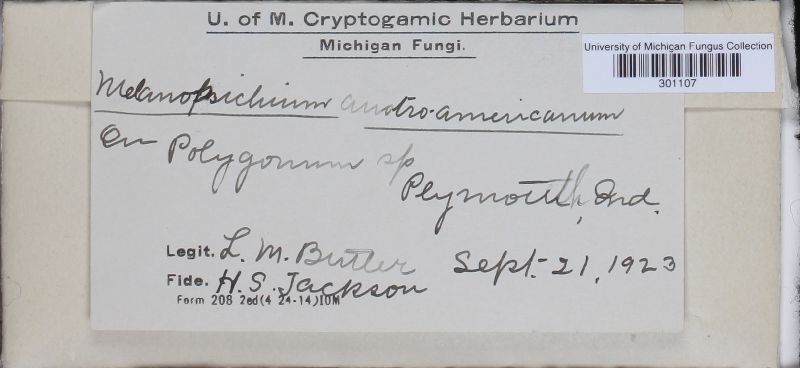 U. of M. Cryptogamic Herbarium
Michigan Fungi.
University of Michigan Fungus Collection
301107
Melanopsichium austro-americanum
On Polygonum sp
Plymouth, Ind.
Legit. L. M. Butler Sept. 21, 1923
Fide. H. S. Jackson
Form 208 2ed(4 24-14)10M